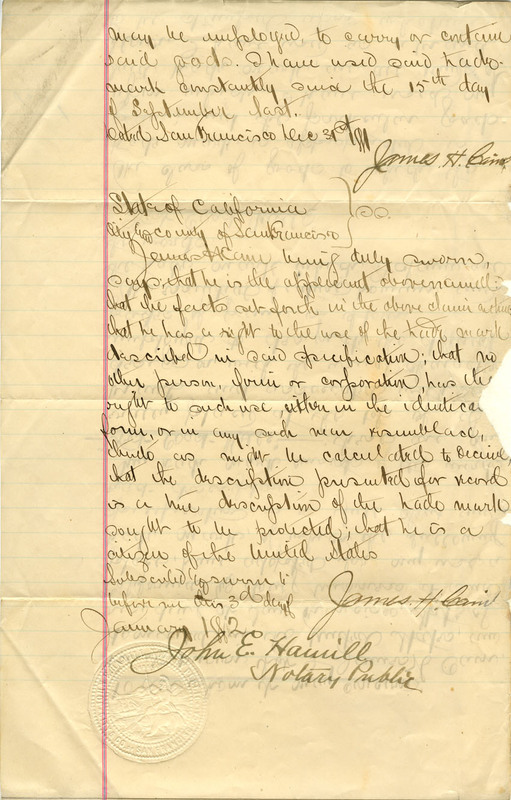 may be employed, to carry or contain
said goods. I have used said trade-
mark constantly since the 15th day
of September last.
Dated San Francisco Dec 31st
James H. Cain
State of California
City & County of San Francisco } SS.
James H Cain being duly sworn,
says, that he is the applicant above named;
that the facts set forth in the above claim are true
that he has a right to the use of the trade mark
described in said specification; that no
other person, firm or corporation, has the
right to such use, either in the identical
form, or in any such near resemblance,
thereto as might be calculated to deceive,
that the description presented for record
is a true description of the trade mark
sought to be protected; that he is a
citizen of the United States
Subscribed & sworn to
before me this 3d day of
James. H. Cain
January
John E. Hamill
Notary Public